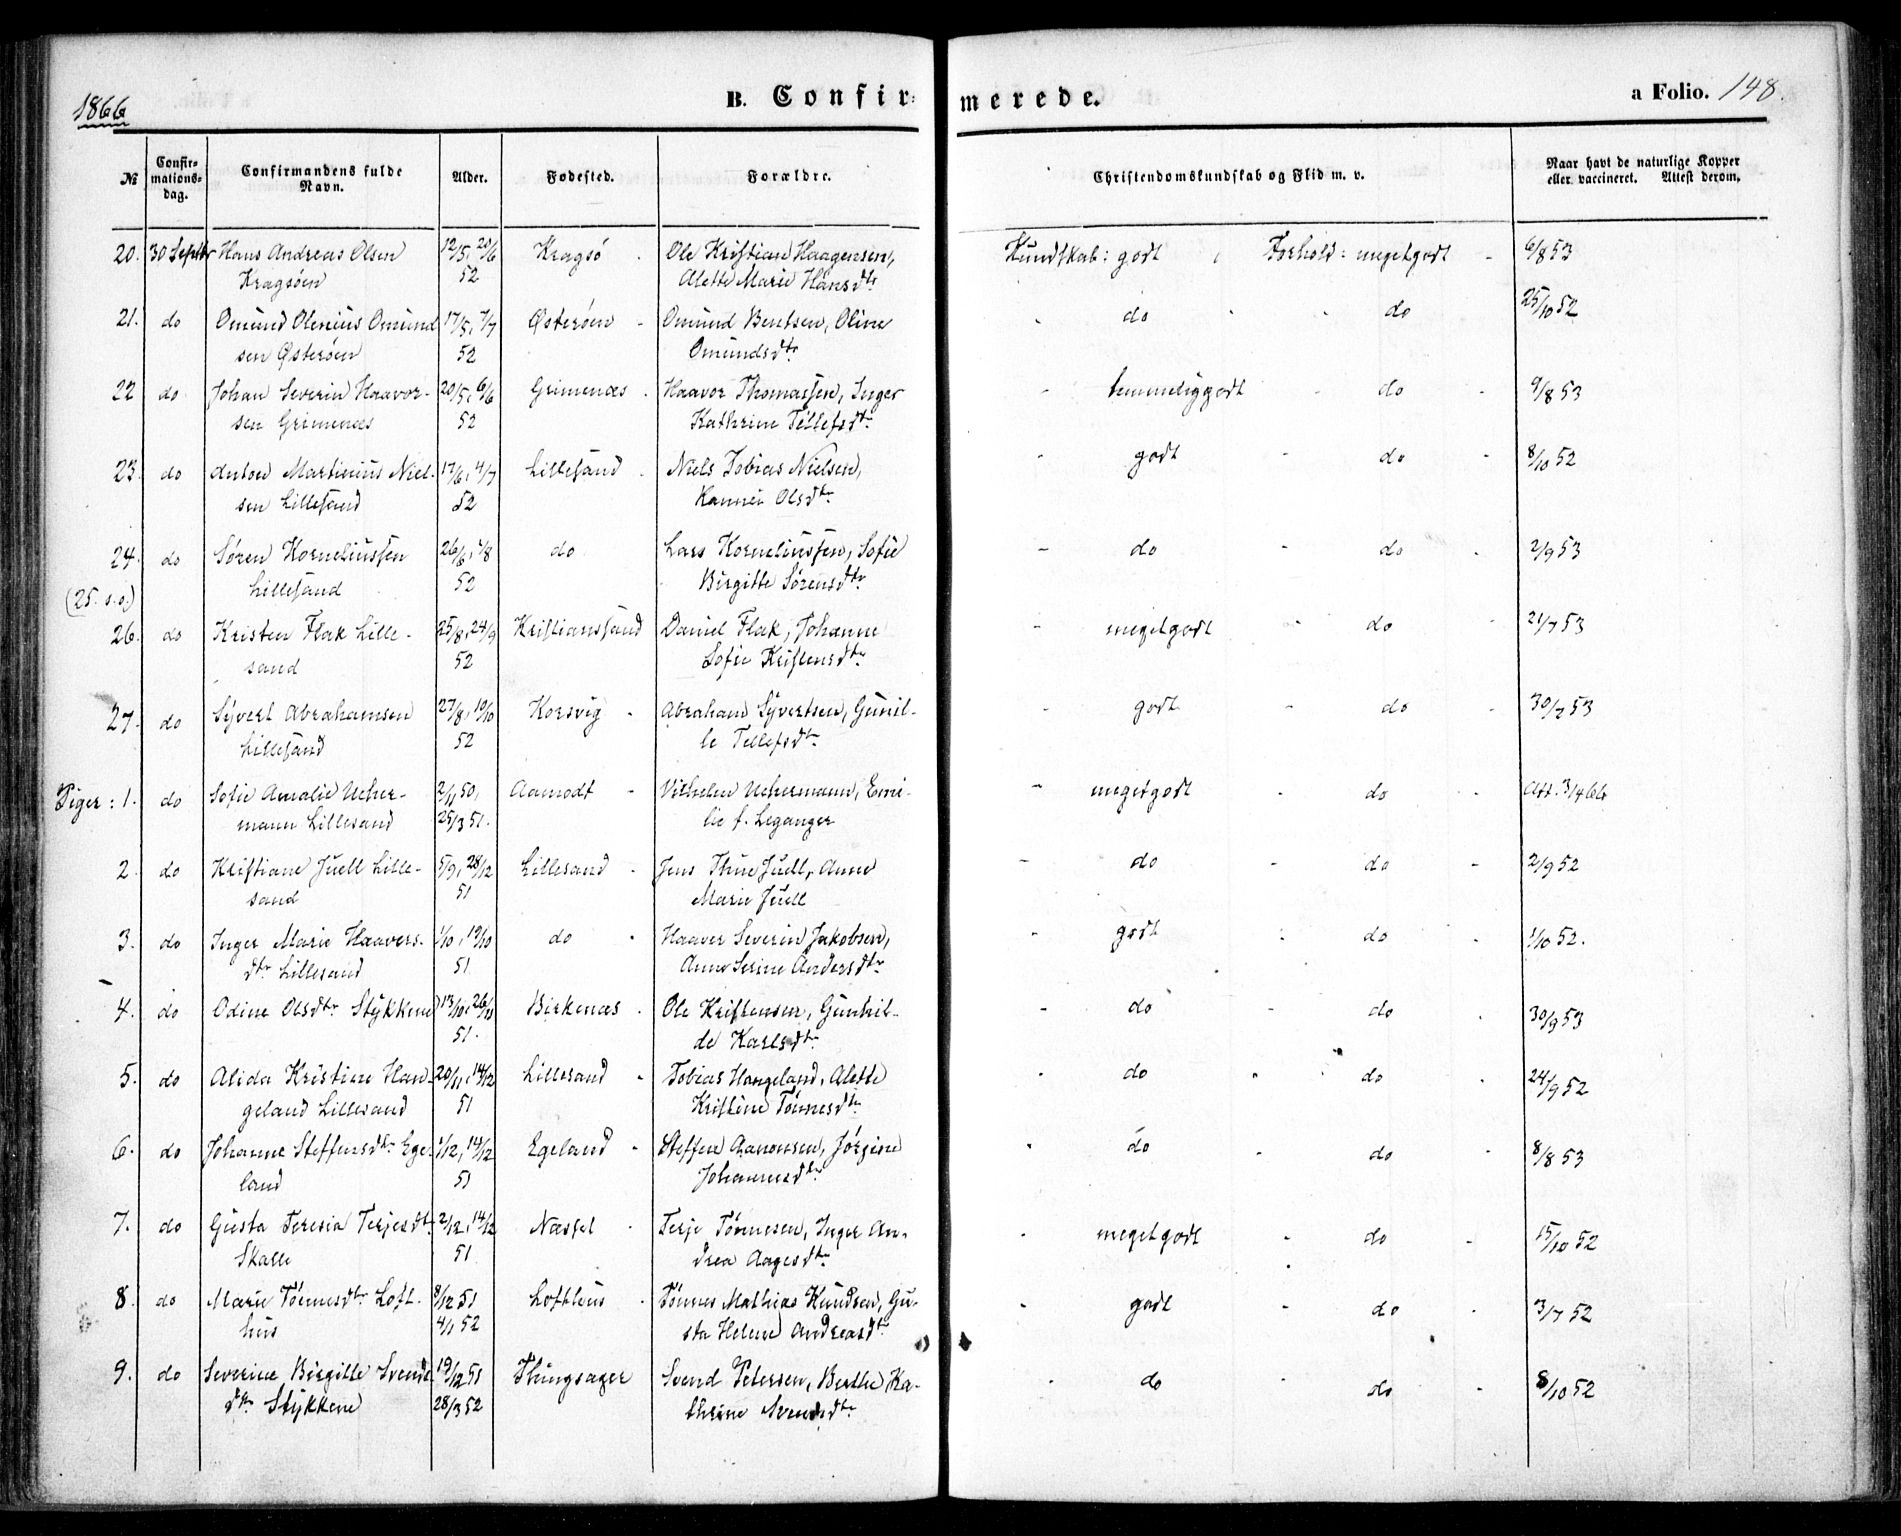 1866
B. Confirmerede.
a Folio. 148.
№ Confirmationsdag. Confirmandens fulde Navn. Alder. Fødested. Forældre. Christendomskundskab og Flid m. v. Naar havt de naturlige Kopper eller vaccineret. Attest derom.
20. 30 Septbr Hans Andreas Olsen 12/5, 20/6 Kragsø Ole Kristian Haagensen, Kundskab: godt, Forhold: megetgodt - 6/8 53
Kragsøen 52 Alette Marie Hansdtr
21. do Omund Olenius Omund 17/5, 7/7 Østerøen - Omund Bentsen, Oline - do - - do 25/10 52
sen Østerøen 52 Omundsdtr
22 do Johan Severin Haavor- 20/5, 6/6 Grimenæs - Haavor Thomassen, Inger - temmeliggodt - do - 9/8 53
sen Grimenæs 52 Kathrine Tellefsdtr
23. do Anton Martinius Niel- 17/6, 4/7 Lillesand - Niels Tobias Nielsen, - godt - do - 8/10 52
sen Lillesand 52 Olsdtr
24. do Søren Korneliussen 26/6, 1/8 do Lars Korneliussen, Sofie - do - do - 2/9 53
Lillesand 52 Birgitte Sørensdtr
(25. s.o.)
26. do Kristen Flak Lille- 25/8, 24/9 Kristianssand Daniel Flak, Johanne - megetgodt - do - 21/7 53
sand 52 Sofie Kristensdtr
27. do Syvert Abrahamsen 27/8, 19/10 Korsvig - Abraham Syvertsen, Gunil- - godt - do - 30/7 53
Lillesand 52 le Tellefsdtr
Piger: 1. do Sofie Amalie Ucher- 2/11 50, Aamodt - Vilhelm Uchermann, Emi- - megetgodt - do - Att. 3/4 66
mann Lillesand 25/3 51. lie f. Leganger
2. do Kristiane Juell Lille- 5/9, 28/12 Lillesand - Jens Thue Juell, Anne - do - do - 2/9 52
sand 51 Marie Juell
3. do Inger Marie Haavors- 1/10, 19/10 do - Haavor Severin Jakobsen, - godt - do - 1/10 52.
dtr Lillesand 51 Anne Serine Andersdtr
4. do Odine Olsdtr Stykkene 13/10, 26/11 Birkenæs - Ole Kristensen, Gunhil- - do - do - 30/9 53
51. de Karlsdtr
5. do Alida Kristine Han- 20/11, 14/12 Lillesand - Tobias Hangeland, Alette - do - do - 24/9 52
geland Lillesand 51 Kristine Tønnesdtr
6. do Johanne Steffensdtr Ege- 1/12, 14/12 Egeland - Steffen Aanonsen, Jørgine - do - do - 8/8 53
land 51 Johannesdtr
7. do Gusta Teresia Terjesdtr 2/12, 14/12 Næssel - Terje Tønnesen, Inger An- - megetgodt - do - 15/10 52
Skalle 51 drea Aagesdtr
8. do Marie Tønnesdtr Loft- 8/12 51 Lofthus - Tønnes Mathias Knudsen, Gu- - godt - do - 3/7 52
hus 4/1 52 sta Helene Andreasdtr
9. do Severine Birgitte Svends 19/12 51 Thingsager Svend Petersen, Berthe Ka- - do - do - 8/10 52
dtr Stykkene 28/3 52 thrine Svendsdtr